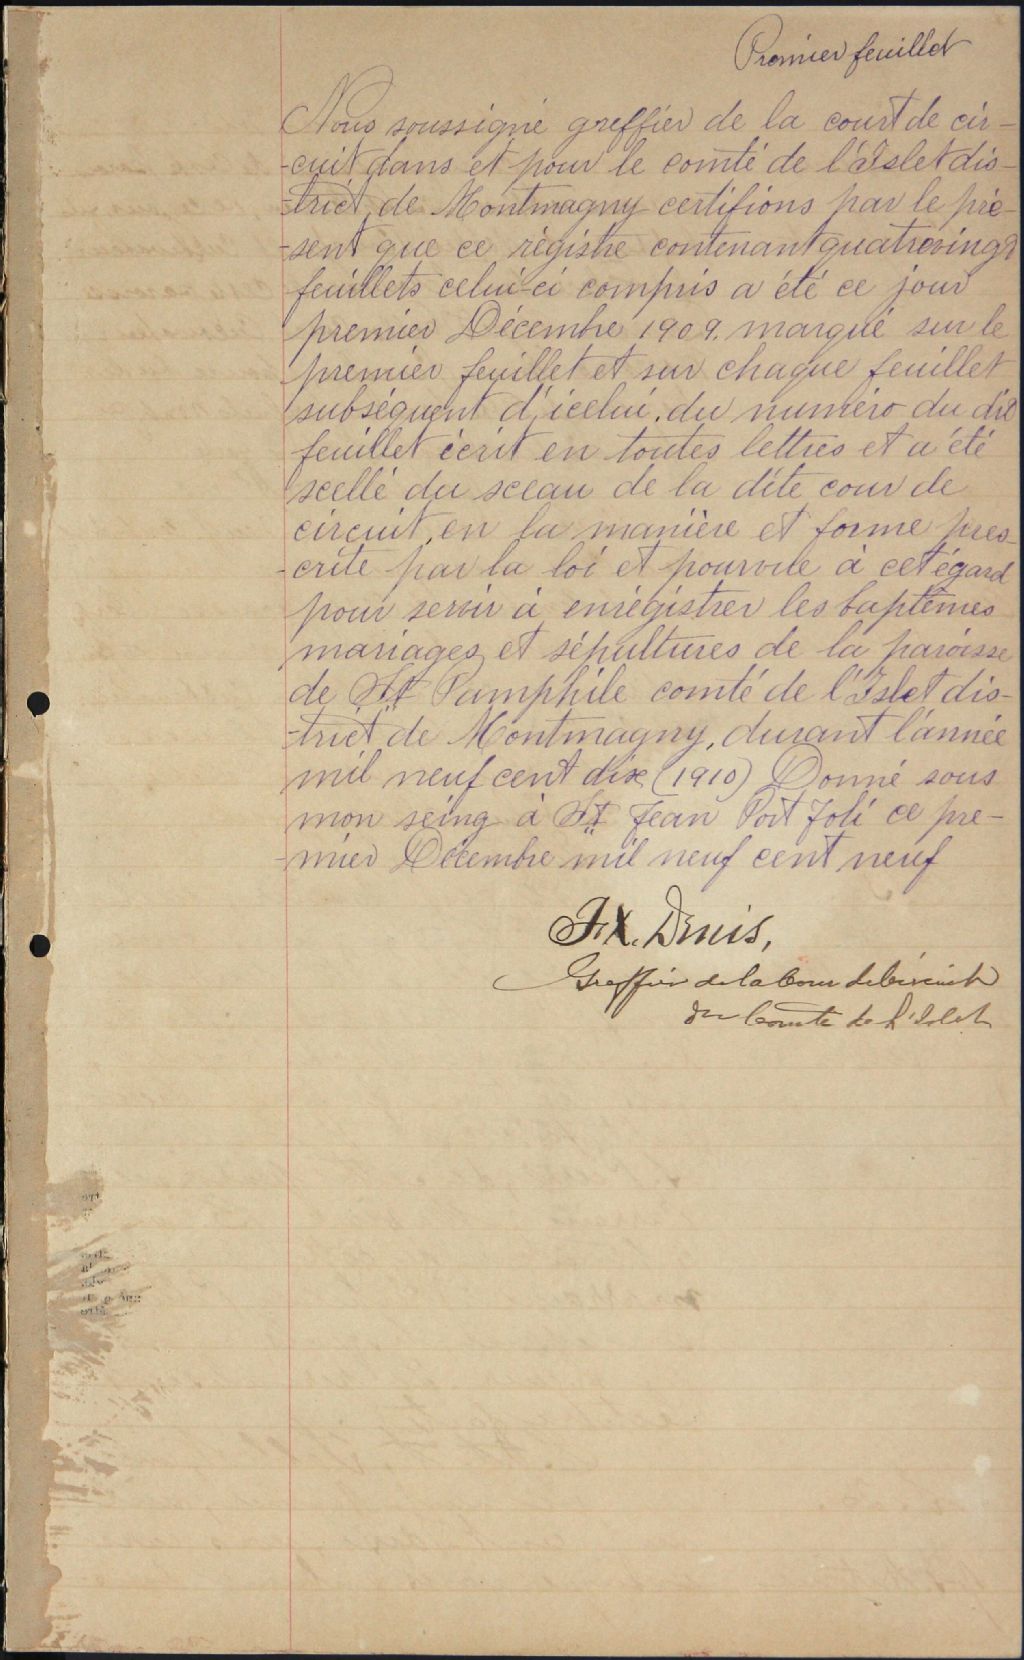 Premier feuillet
Nous soussigné greffier de la court de cir-
-cuit dans et pour le comté de l'Islet dis-
-trict de Montmagny certifions par le pré-
-sent que ce régistre contenant quatrevingt
feuillets celui-ci compris a été ce jour
premier Décembre 1909. marqué sur le
premier feuillet et sur chaque feuillet
subséquent d'icelui. du numéro du dit
feuillet écrit en toutes lettres et a été
scellé du sceau de la dite cour de
circuit, en la manière et forme pres-
-crite par la loi et pourvue à cet égard
pour servir à enrégistrer les baptêmes
mariages et sépultures de la paroisse
de St Pamphile comté de l'Islet dis-
-trict de Montmagny, durant l'année
mil neuf cent dix (1910) Donné sous
mon seing à St Jean Port Joli ce pre-
-mier Décembre mil neuf cent neuf
FX. Denis,
Greffier de la Cour de Circuit
du Comté de L'Islet